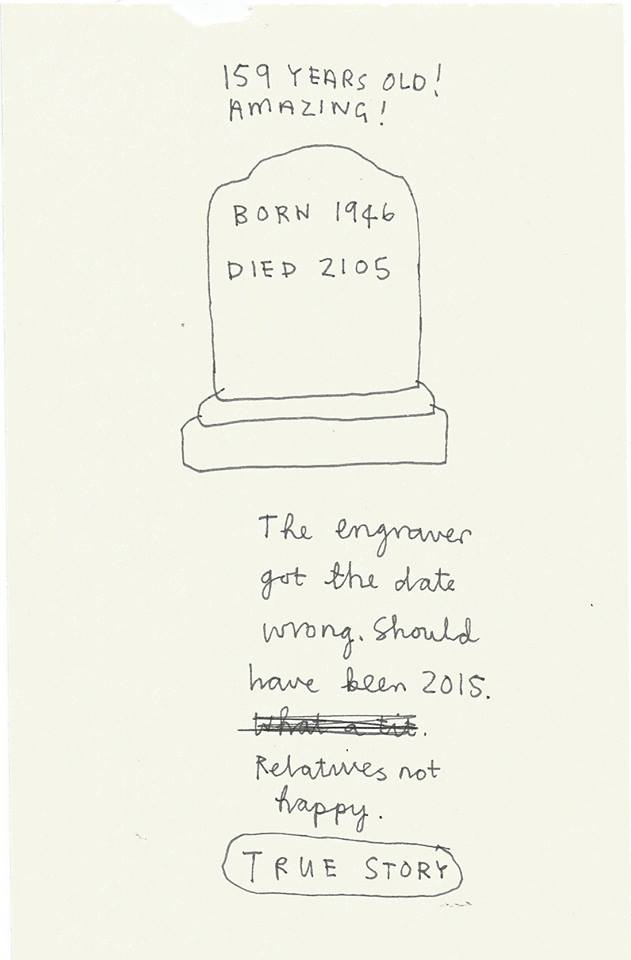 159 YEARS OLD!
AMAZING!
BORN 1946
DIED 2105
The engraver
got the date
wrong. Should
have been 2015.
What a tit.
Relatives not
happy.
TRUE STORY